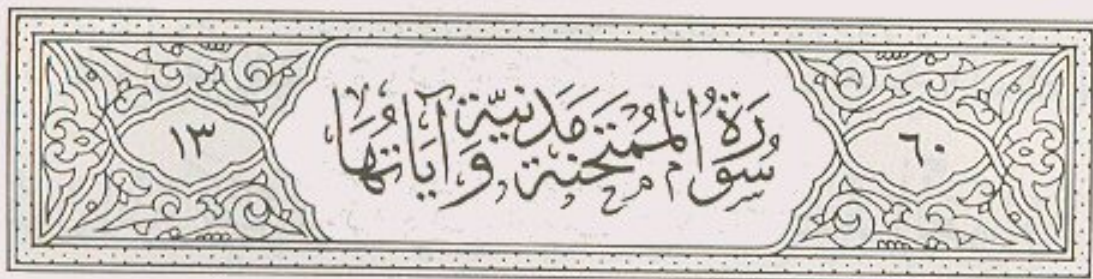 ٦٠
سُورَةُ المُمْتَحِنَة مَدَنِيَّة وَآيَاتُهَا
١٣